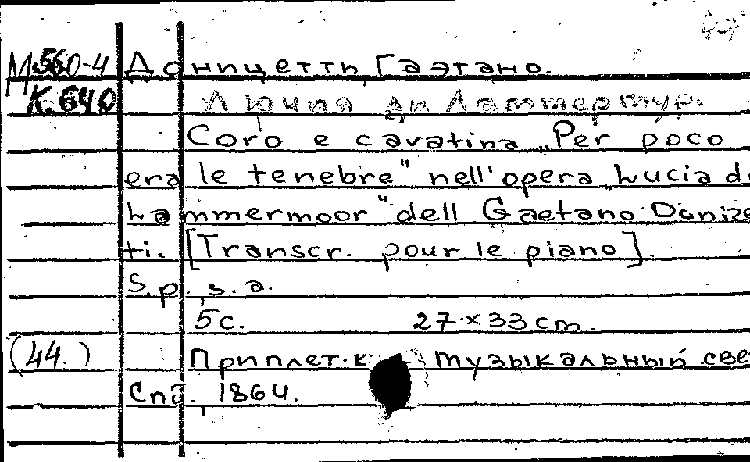 М560-4 Доницетти, Гаэтано.
К.640 Лючия ди Ламмермур.
Coro e cavatina "Per poco
era le tenebre" nell'opera "Lucia di
Lammermoor" dell Gaetano Donizet-
ti. [Transcr. pour le piano].
S.p., s.a.
5с. 27×33 cm.
(44.) Приплет. к музыкальный све
Спб. 1864.